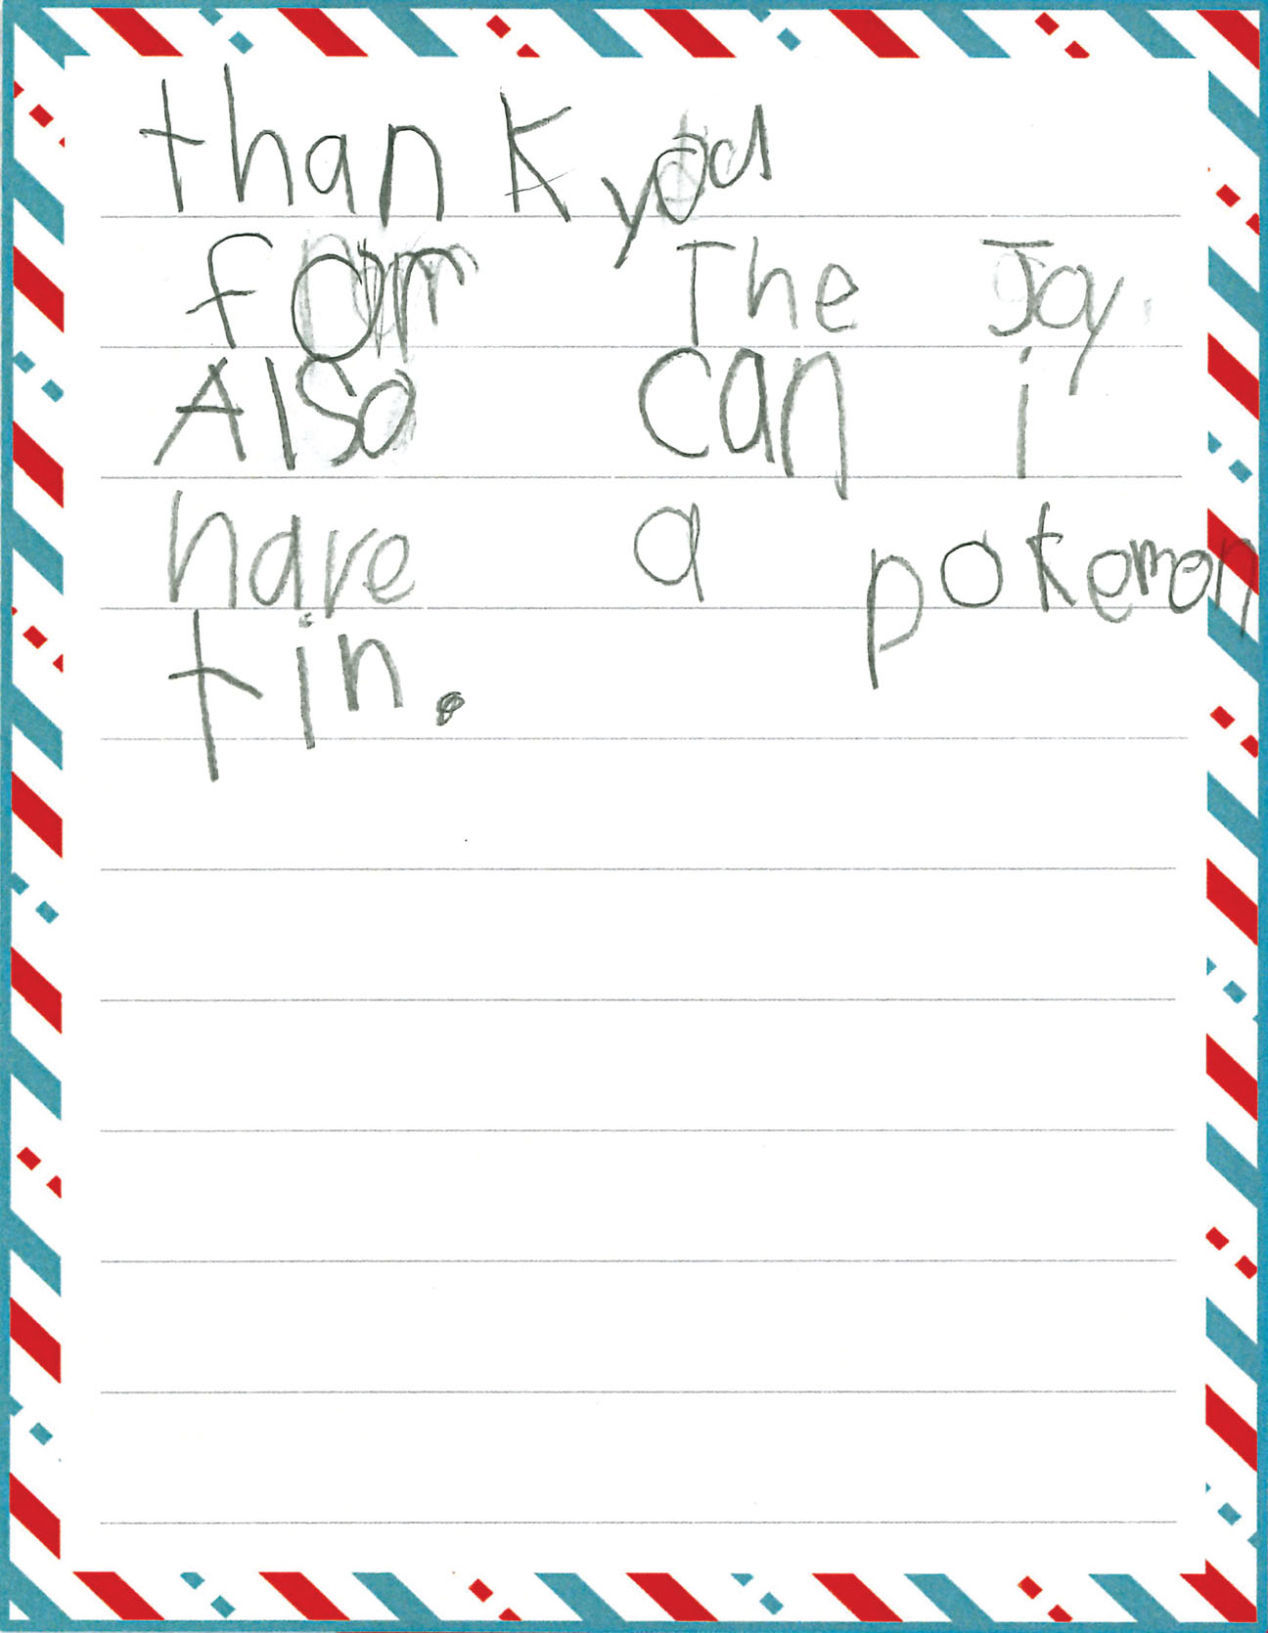 thank you
for The Joy.
Also can i
have a pokemon
tin.